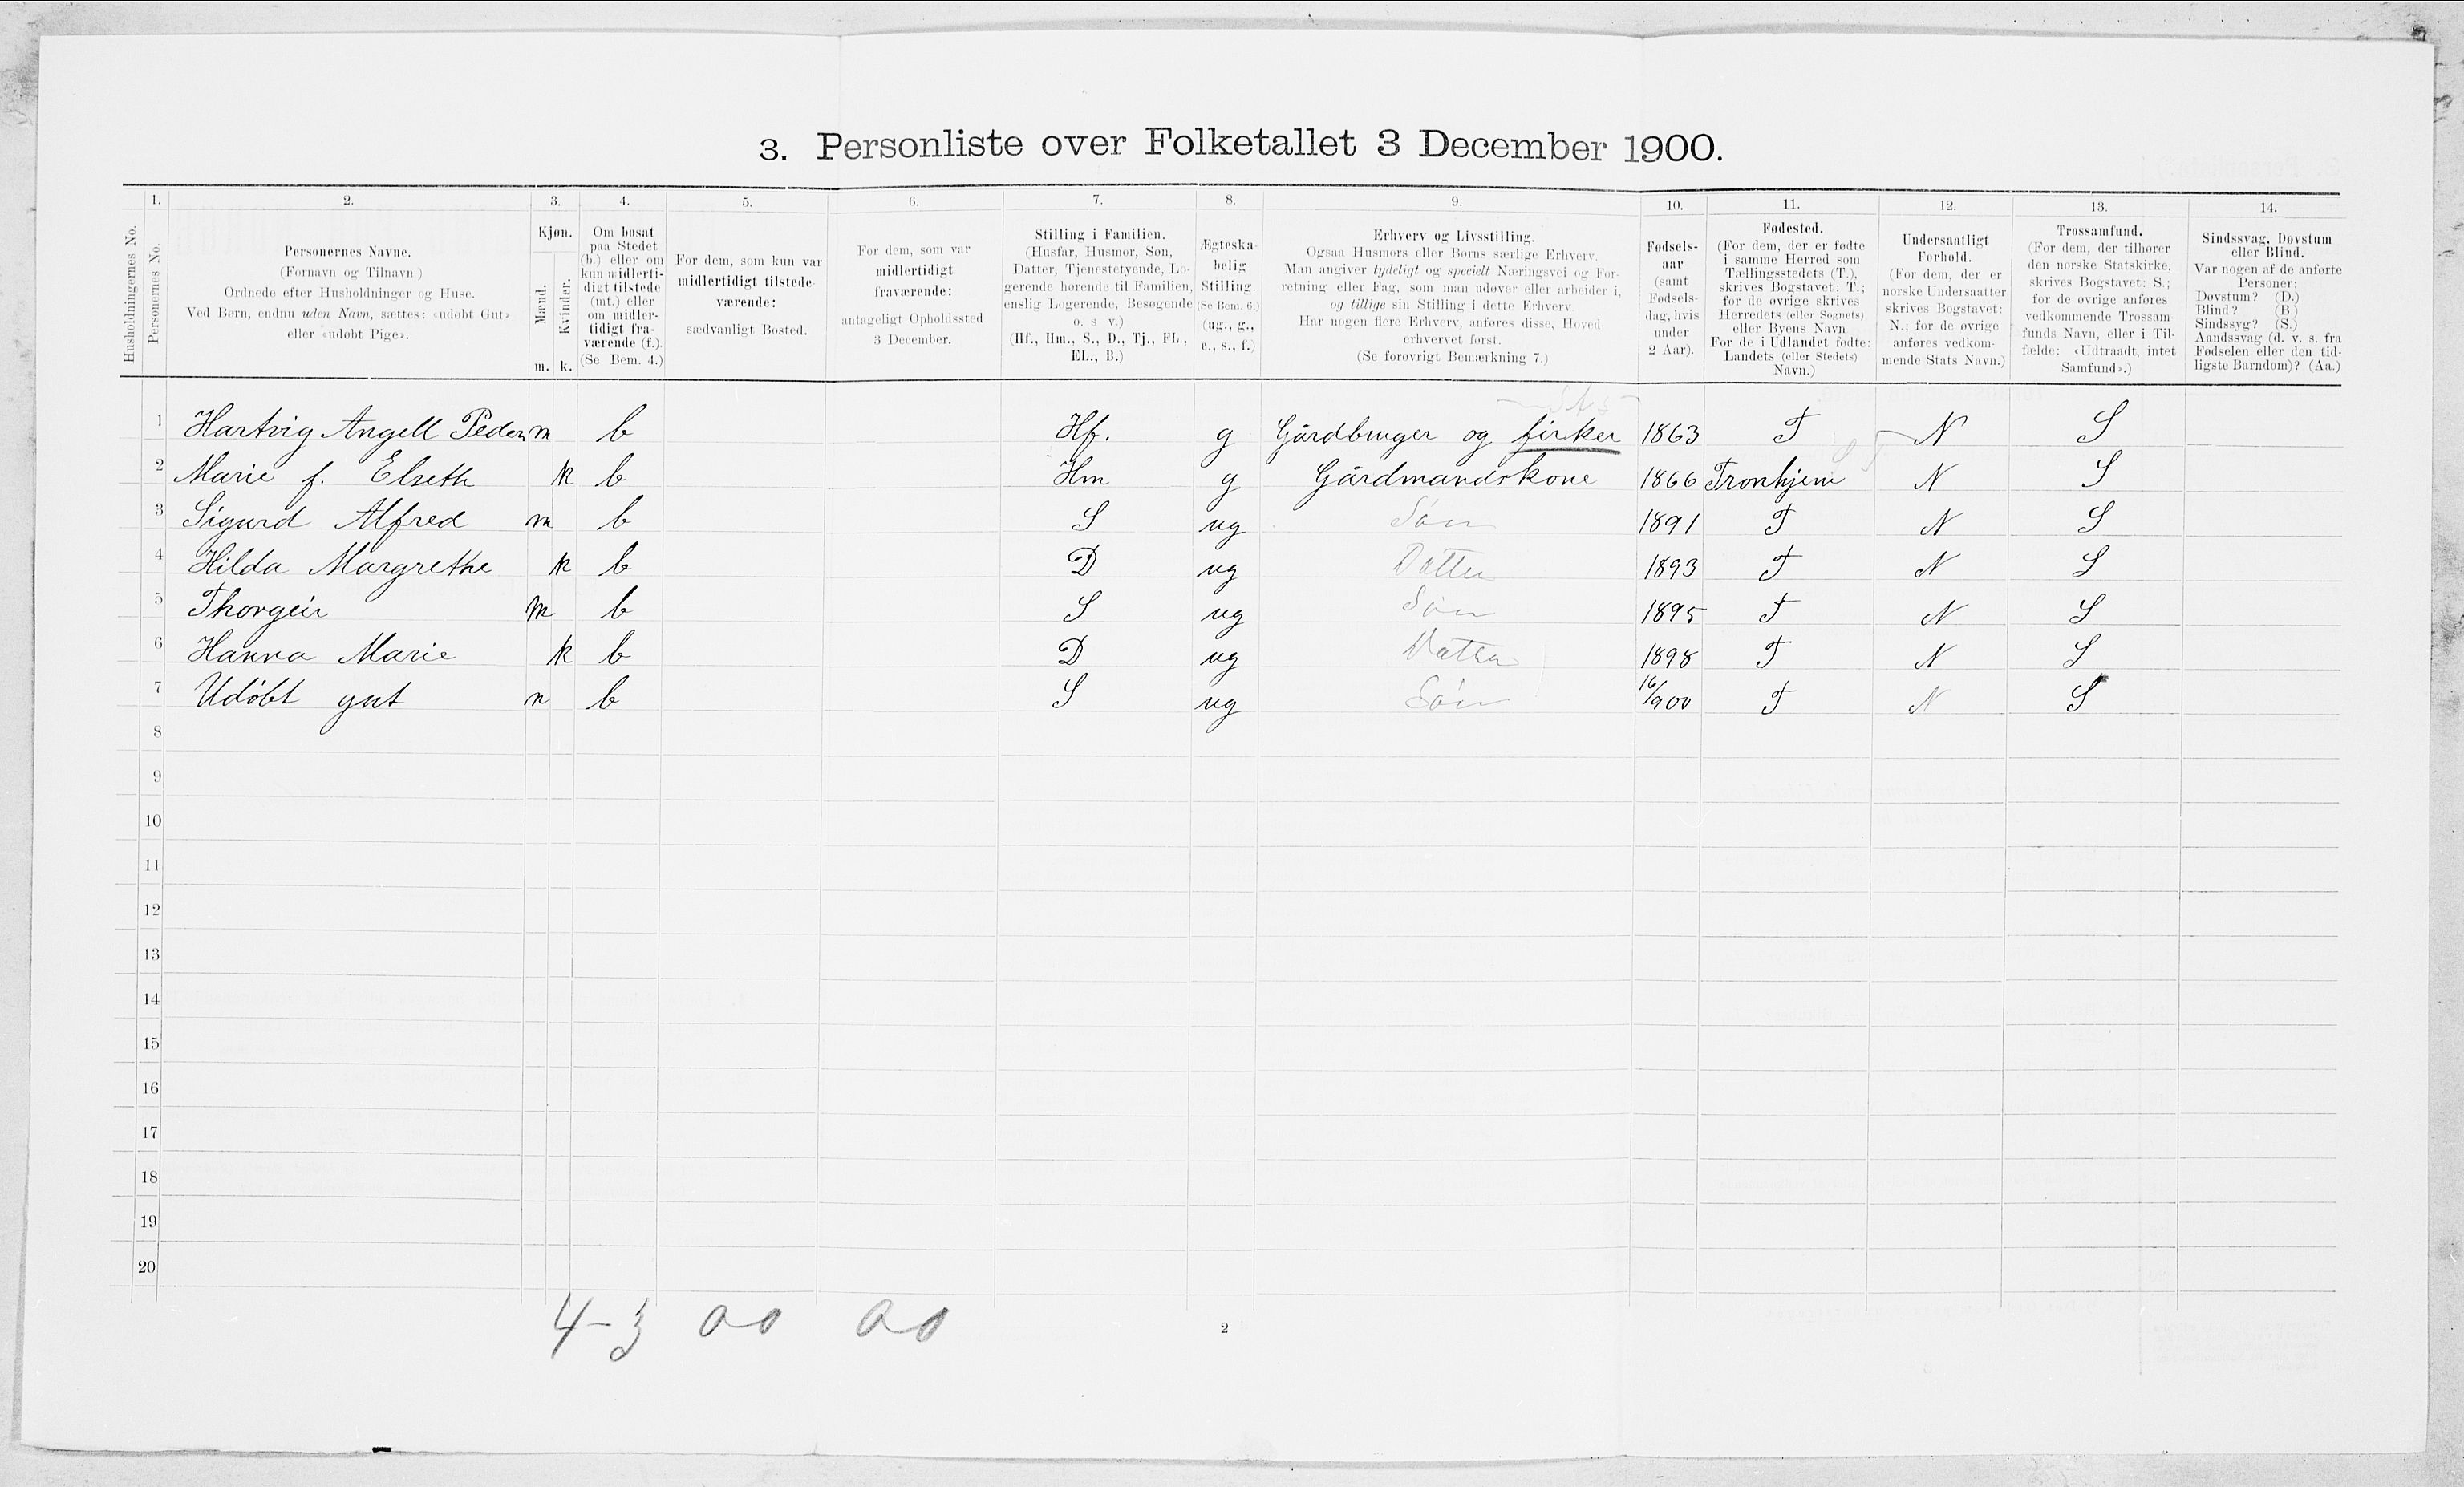 3. Personliste over Folketallet 3 December 1900.
1. 2. 3. 4. 5. 6. 7. 8. 9. 10. 11. 12. 13. 14.
Husholdningernes No.
Personernes No.
Personernes Navne.
(Fornavn og Tilnavn.)
Ordnede efter Husholdninger og Huse.
Ved Børn, endnu uden Navn, sættes: «udøbt Gut»
eller «udøbt Pige».
Kjøn.
Mænd.
Kvinder.
m. k.
Om bosat
paa Stedet
(b.) eller om
kun midlerti-
digt tilstede
(mt.) eller
om midler-
tidigt fra-
værende (f.).
(Se Bem. 4.)
For dem, som kun var
midlertidigt tilstede-
værende:
sædvanligt Bosted.
For dem, som var
midlertidigt
fraværende:
antageligt Opholdssted
3 December.
Stilling i Familien.
(Husfar, Husmor, Søn,
Datter, Tjenestetyende, Lo-
gerende hørende til Familien,
enslig Logerende, Besøgende
o. s. v.)
(Hf., Hm., S., D., Tj., FL.,
EL., B.)
Ægteska-
belig
Stilling.
(Se Bem. 6.)
(ug., g.,
e., s., f.)
Erhverv og Livsstilling.
Ogsaa Husmors eller Børns særlige Erhverv.
Man angiver tydeligt og specielt Næringsvei og For-
retning eller Fag, som man udøver eller arbeider i,
og tillige sin Stilling i dette Erhverv.
Har nogen flere Erhverv, anføres disse, Hoved-
erhvervet først.
(Se forøvrigt Bemærkning 7.)
Fødsels-
aar
(samt
Fødsels-
dag, hvis
under
2 Aar).
Fødested.
(For dem, der er fødte
i samme Herred som
Tællingsstedets (T.),
skrives Bogstavet: T.;
for de øvrige skrives
Herredets (eller Sognets)
eller Byens Navn
For de i Udlandet fødte:
Landets (eller Stedets)
Navn.)
Undersaatligt
Forhold.
(For dem, der er
norske Undersaatter
skrives Bogstavet:
N.; for de øvrige
anføres vedkom-
mende Stats Navn.)
Trossamfund.
(For dem, der tilhører
den norske Statskirke,
skrives Bogstavet: S.;
for de øvrige anføres
vedkommende Trossam-
funds Navn, eller i Til-
fælde: «Udtraadt, intet
Samfund».)
Sindssvag, Døvstum
eller Blind.
Var nogen af de anførte
Personer:
Døvstum? (D.)
Blind? (B.)
Sindssyg? (S.)
Aandssvag (d. v. s. fra
Fødselen eller den tid-
ligste Barndom)? (Aa.)
1 Hartvig Angell Peders m b Hf. g Gårdbruger og fisker 1863 T N S
2 Marie f. Elseth k b Hm g Gårdmandskone 1866 Tronhjem N S
3 Sigurd Alfred m b S ug Søn 1891 T N S
4 Hilda Margrethe k b D ug Datter 1893 T N S
5 Thorgeir m b S ug Søn 1895 T N S
6 Hanna Marie k b D ug Datter 1898 T N S
7 Udøbt gut m b S ug Søn 16/9 00 T N S
8
9
10
11
12
13
14
15
16
17
18
19
20
4-3 00 00
2